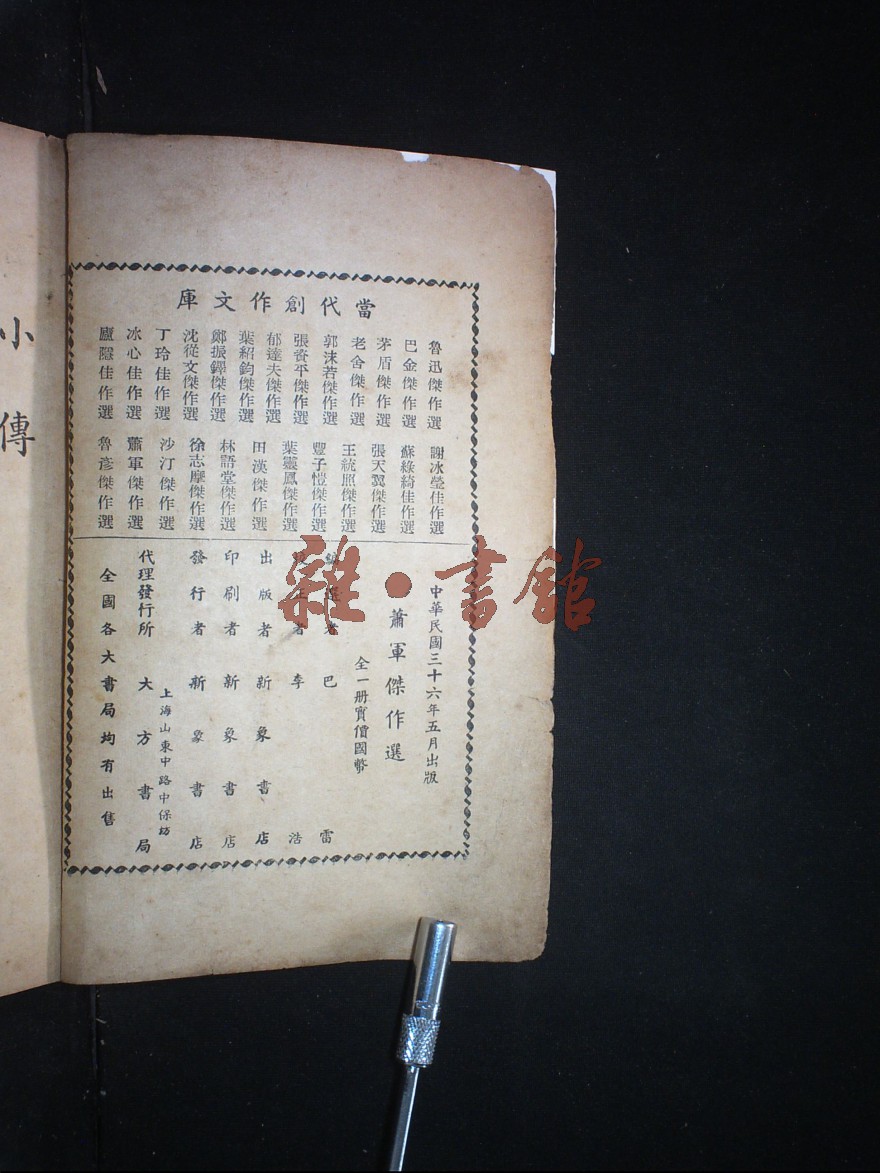 當代創作文庫
魯迅傑作選
巴金傑作選
茅盾傑作選
老舍傑作選
郭沫若傑作選
張資平傑作選
郁達夫傑作選
葉紹鈞傑作選
鄭振鐸傑作選
沈從文傑作選
丁玲佳作選
冰心佳作選
廬隱佳作選
謝冰瑩佳作選
蘇綠綺佳作選
張天翼傑作選
王統照傑作選
豐子愷傑作選
葉靈鳳傑作選
田漢傑作選
林語堂傑作選
徐志摩傑作選
沙汀傑作選
蕭軍傑作選
魯彥傑作選
中華民國三十六年五月出版
蕭軍傑作選
全一册實價國幣
編選者 巴雷
正者 李浩
出版者 新象書店
印刷者 新象書店
發行者 新象書店
上海山東中路中保坊
代理發行所 大方書局
全國各大書局均有出售
小傳
雜·書館